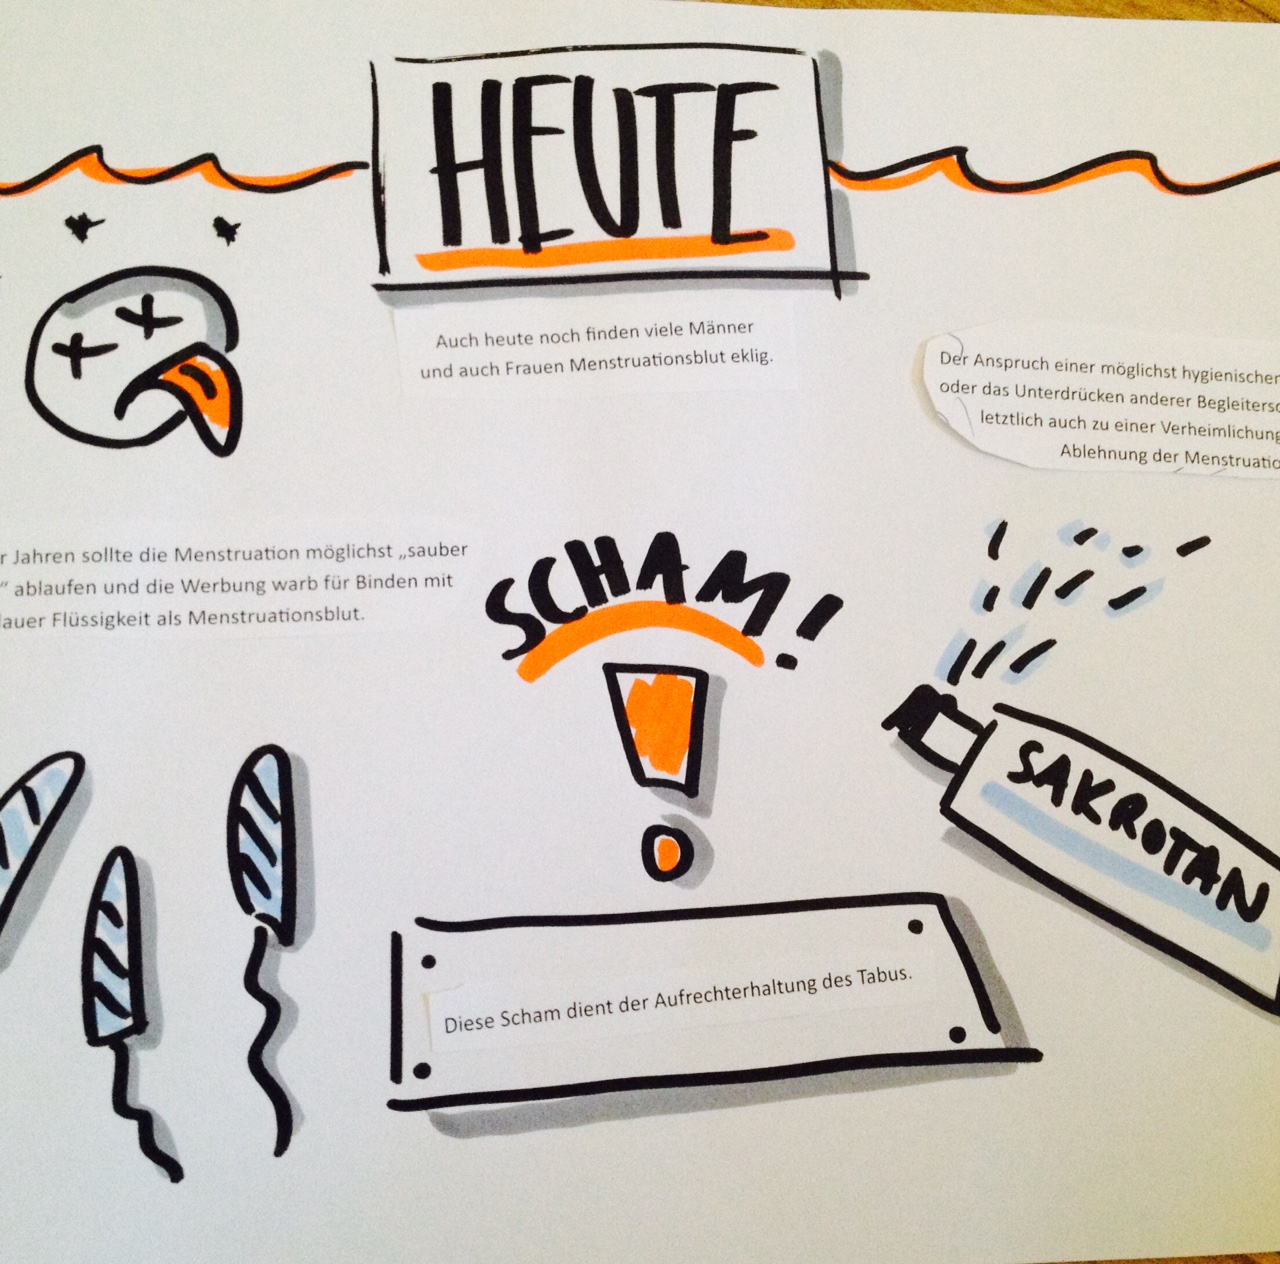 HEUTE
Auch heute noch finden viele Männer
und auch Frauen Menstruationsblut eklig.
Der Anspruch einer möglichst hygienischen
oder das Unterdrücken anderer
letztlich auch zu einer Verheimlichung
Ablehnung der
r Jahren sollte die Menstruation möglichst „sauber
“ ablaufen und die Werbung warb für Binden mit
lauer Flüssigkeit als Menstruationsblut.
SCHAM!
SAKROTAN
Diese Scham dient der Aufrechterhaltung des Tabus.